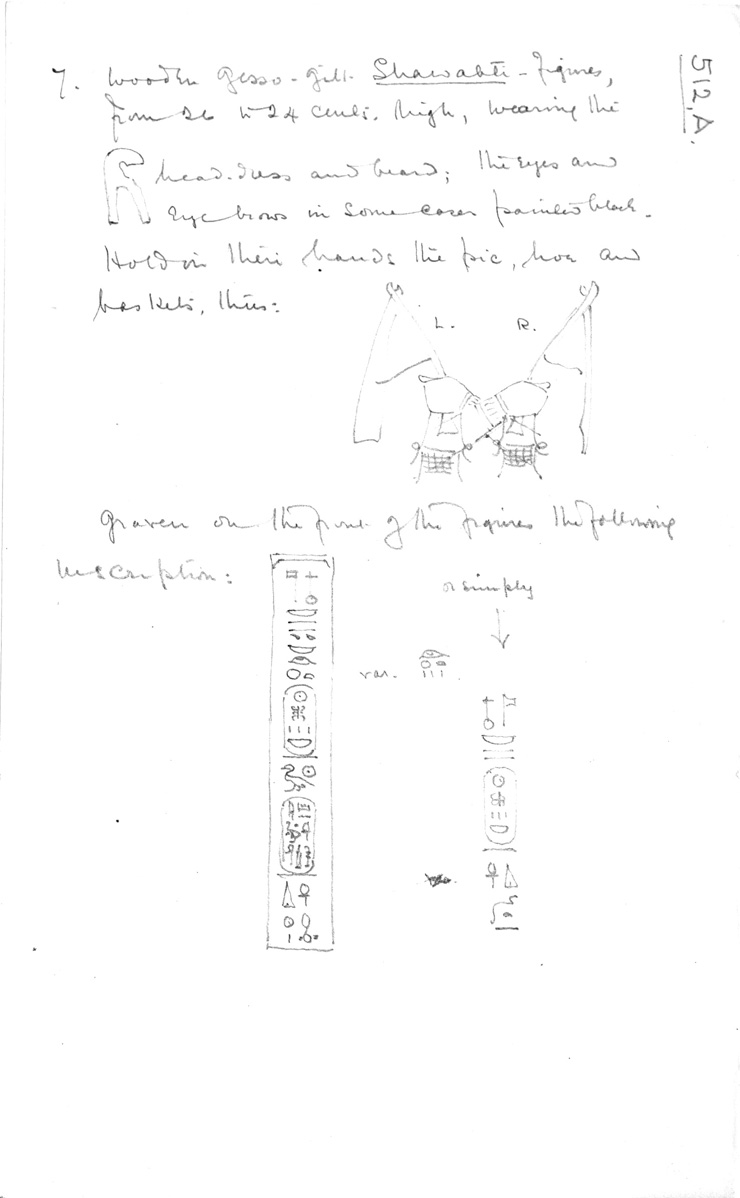 512.A.
7. Wooden gesso-gilt Shawabti-figures,
from 26 to 24 cents. high, wearing the
head-dress and beard; the eyes and
eye brows in some cases painted black.
Hold in their hands the pic, hoe and
baskets, thus:
L. R.
Graven on the front of the figures the following
inscription:
or simply
var.